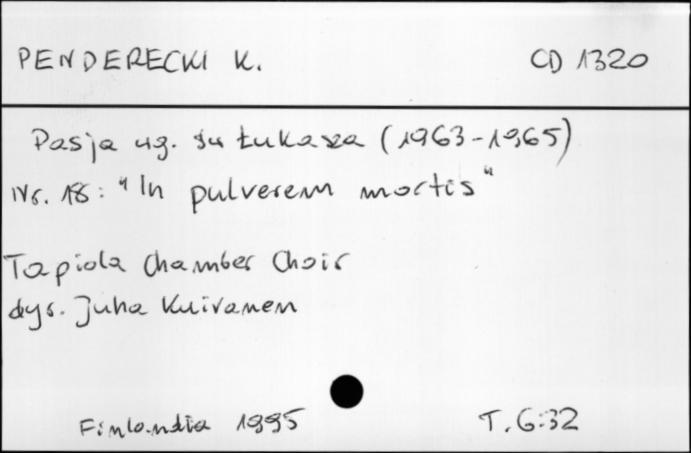 PENDERECKI K. CD 1320
Pasja wg. św Łukasza (1963-1965)
Nr. 18: "In pulverem mortis"
Tapiola Chamber Choir
dyr. Juha Kuivanen
Finlandia 1995 T. 6:32